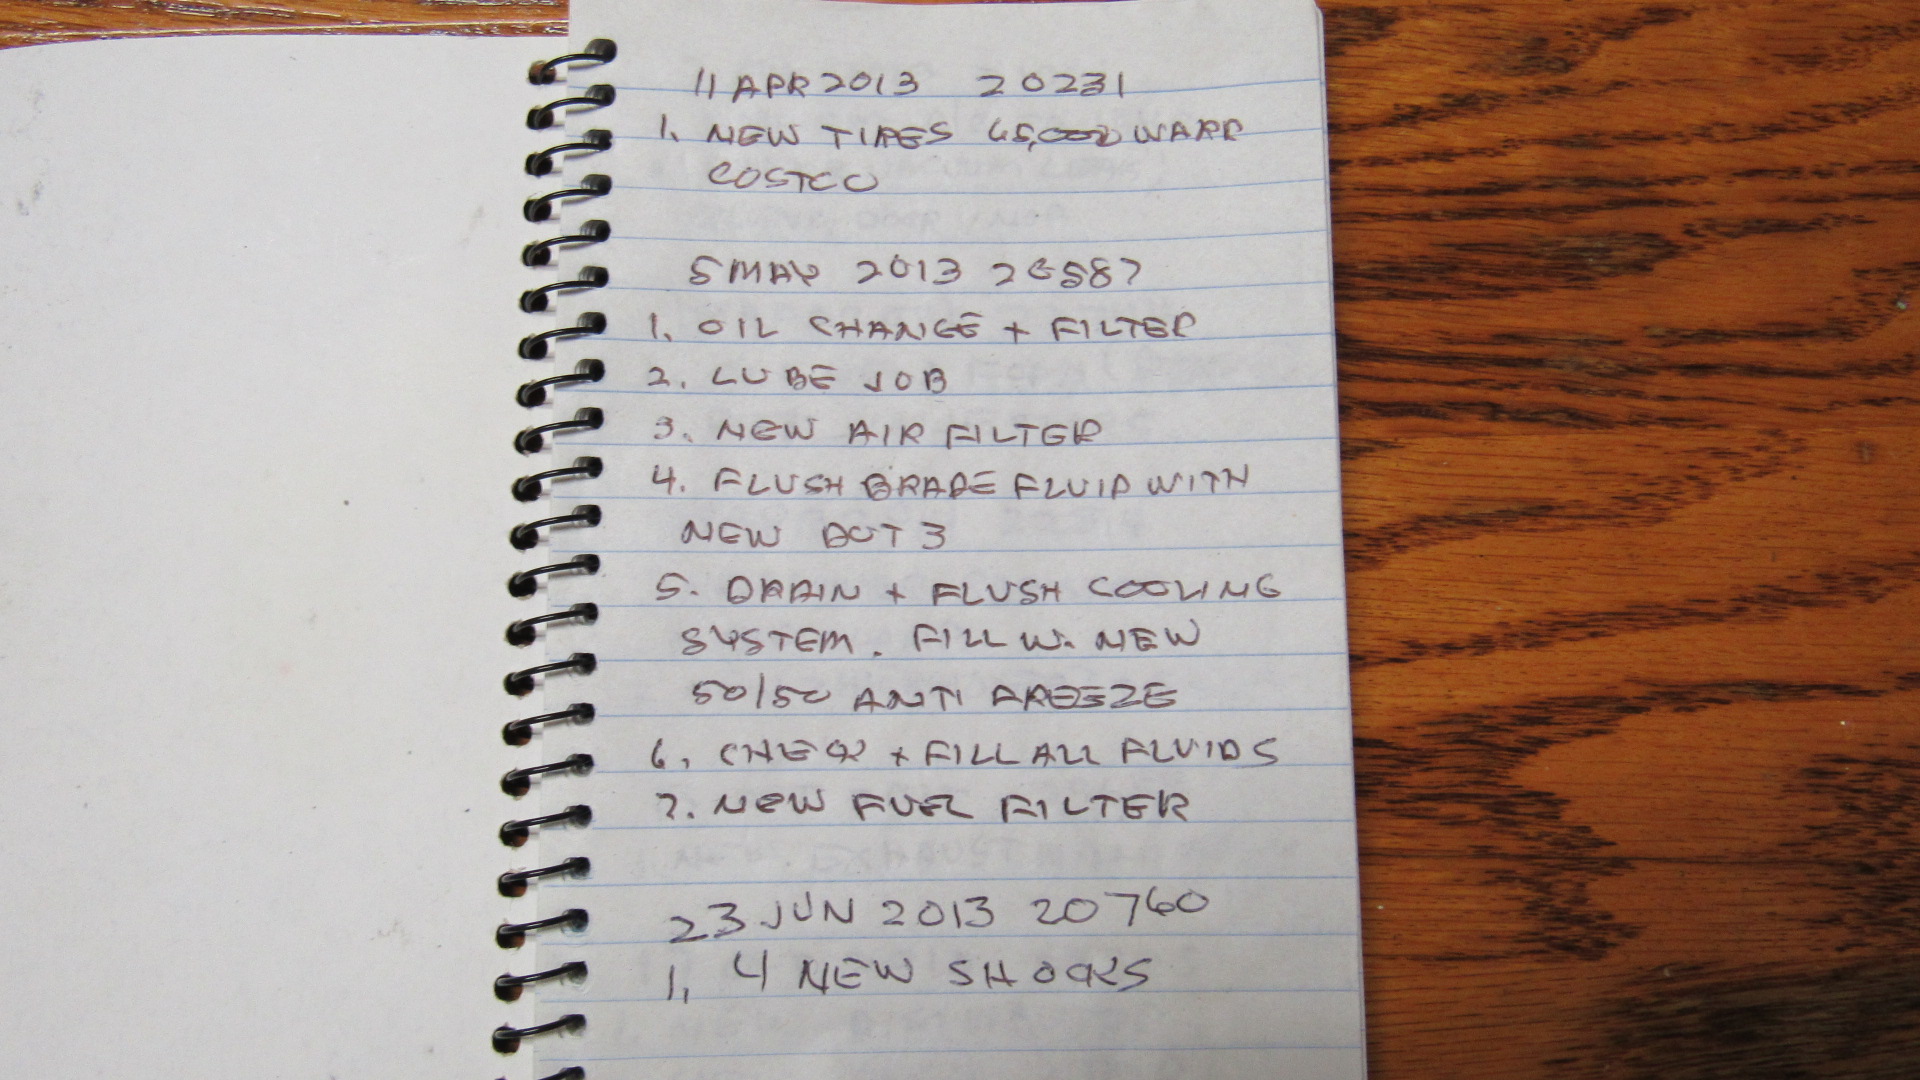 11 APR 2013 20231
1. NEW TIRES 65,000 WARR
COSTCO
5 MAY 2013 20587
1. OIL CHANGE + FILTER
2. LUBE JOB
3. NEW AIR FILTER
4. FLUSH BRAKE FLUID WITH
NEW DOT 3
5. DRAIN + FLUSH COOLING
SYSTEM. FILL W. NEW
50/50 ANTI FREEZE
6. CHECK + FILL ALL FLUIDS
7. NEW FUEL FILTER
23 JUN 2013 20760
1. 4 NEW SHOCKS